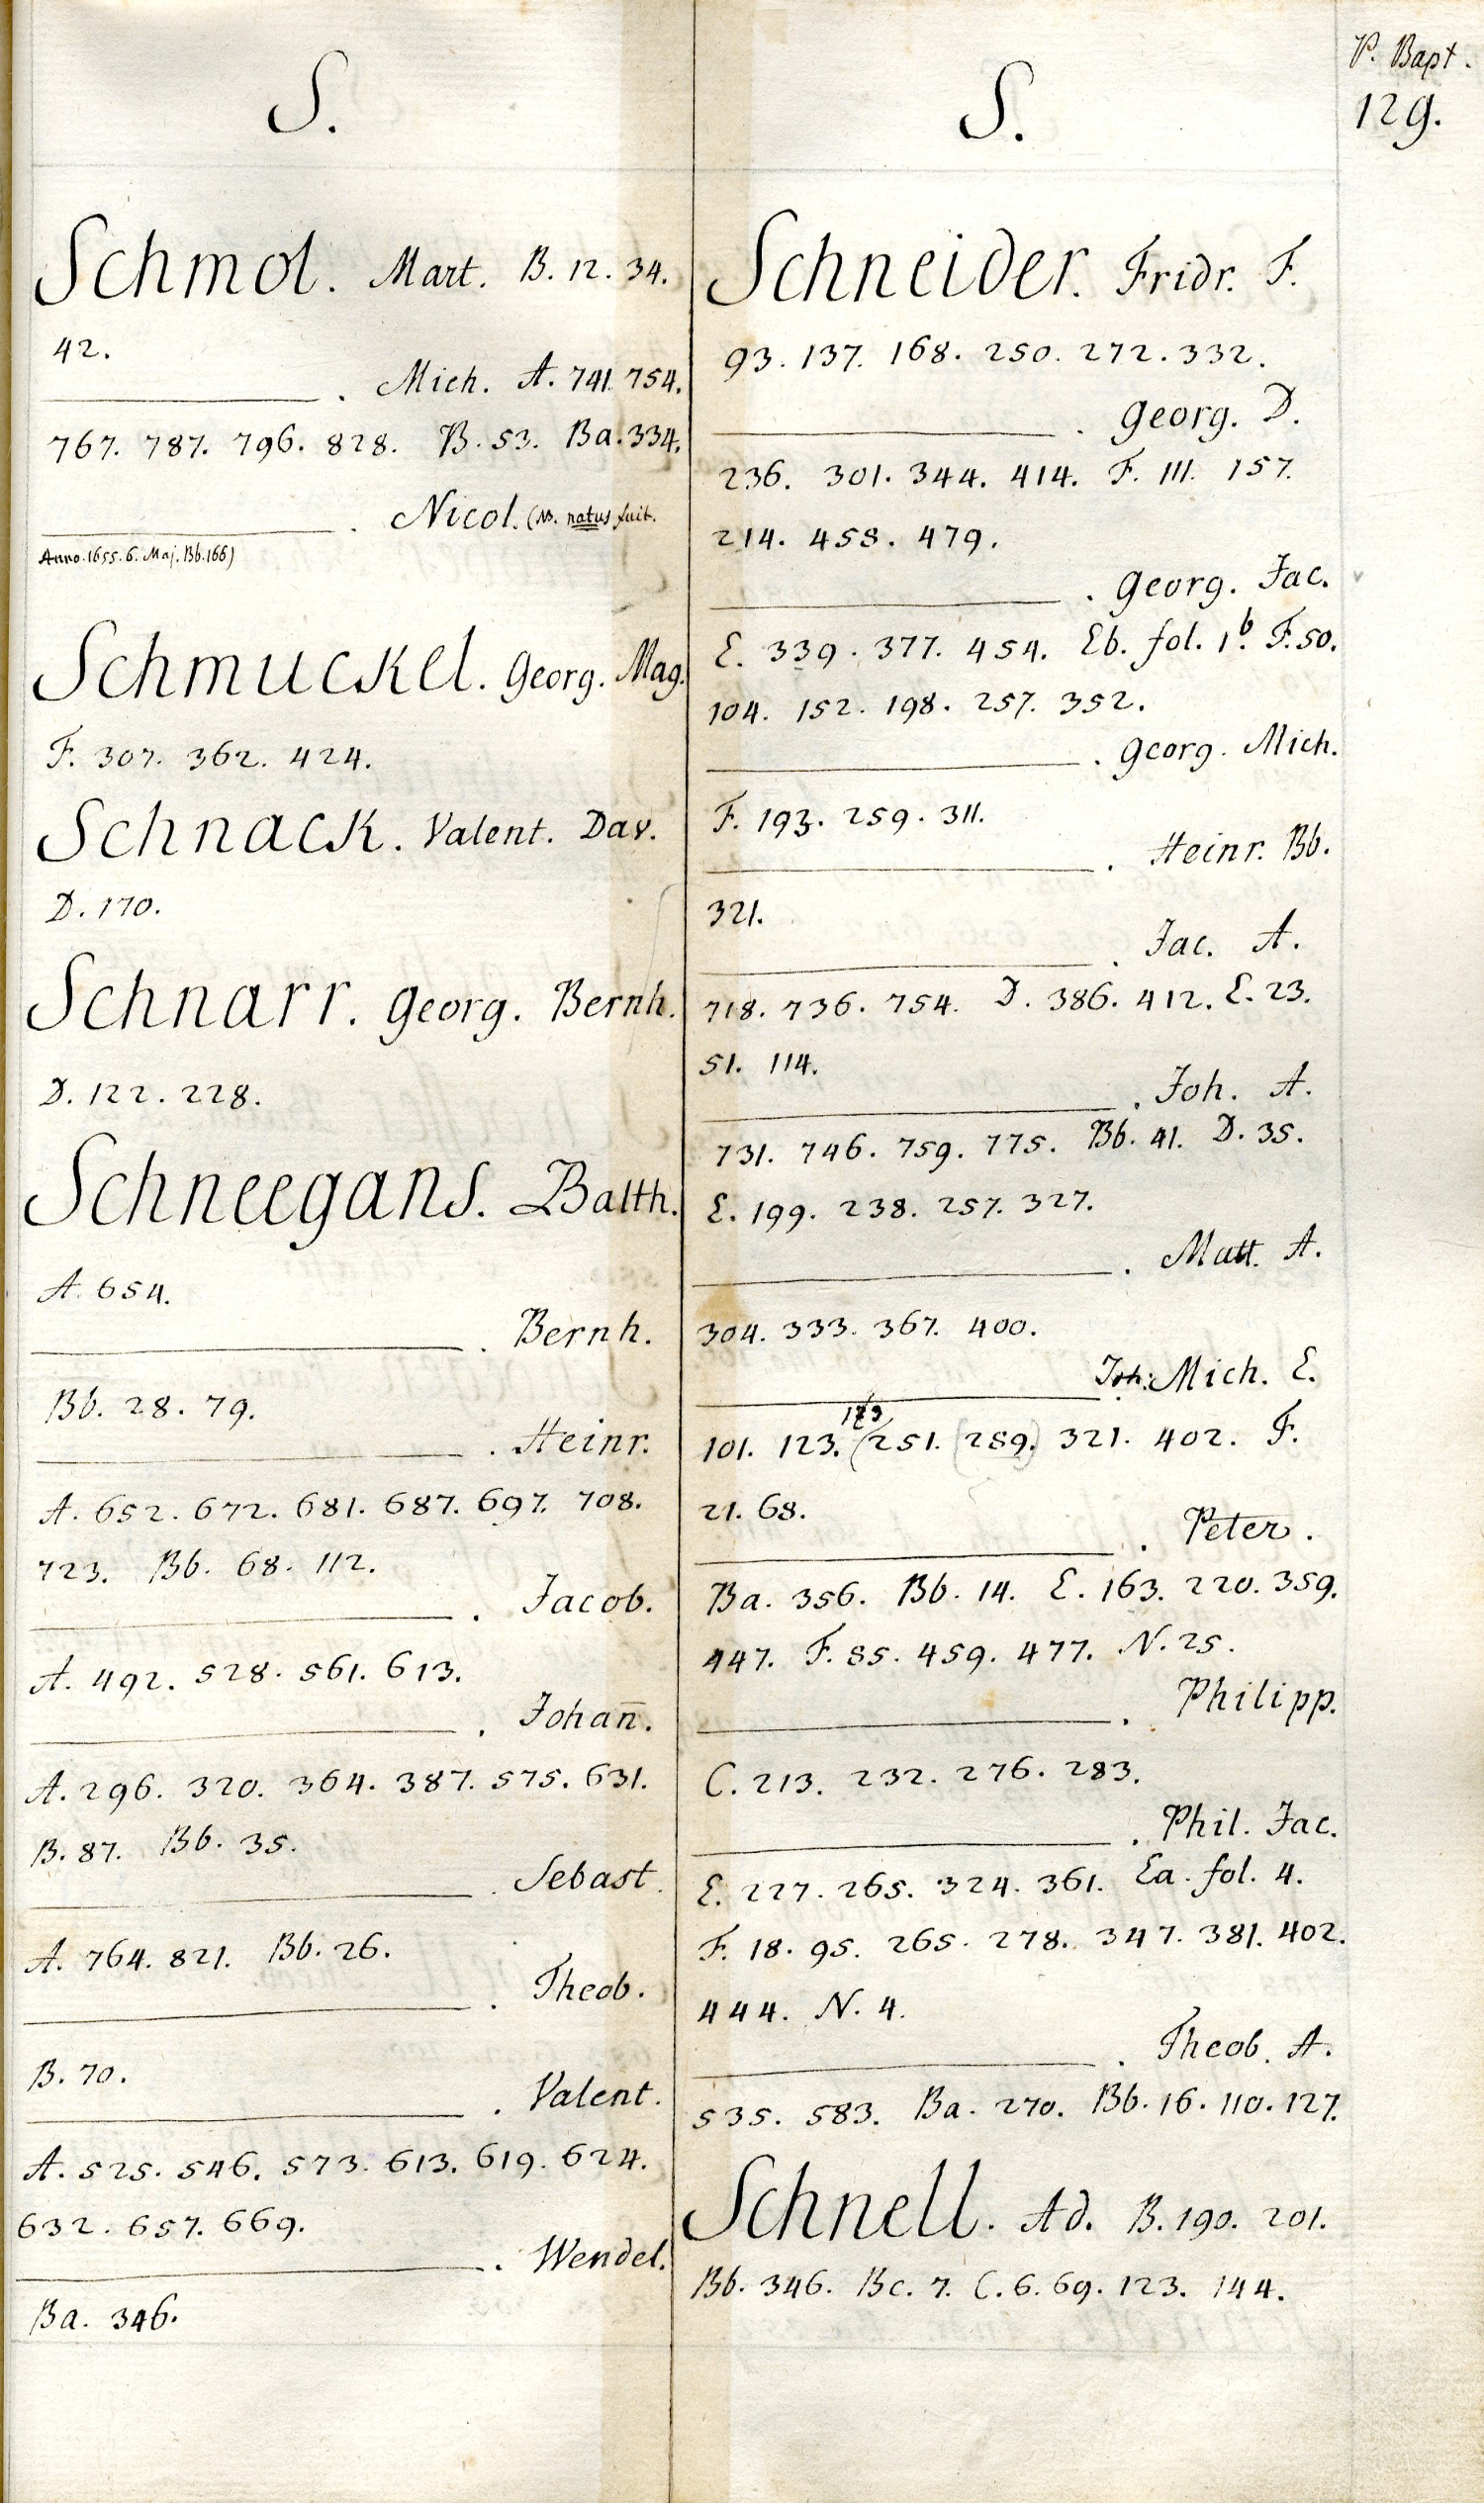 P. Bapt.
129.
S.
Schmol. Mart. B. 12. 34.
42.
. Mich. A. 741. 754.
767. 787. 796. 828. B. 53. Ba. 334.
. Nicol. (NB. natus fuit.
Anno. 1655. 6. Maj. Bb. 166)
Schmuckel. Georg. Mag.
F. 307. 362. 424.
Schnack. Valent. Dav.
D. 170.
Schnarr. Georg. Bernh.
D. 122. 228.
Schneegans. Balth.
A. 654.
. Bernh.
Bb. 28. 79.
. Heinr.
A. 652. 672. 681. 687. 697. 708.
723. Bb. 68. 112.
. Jacob.
A. 492. 528. 561. 613.
. Johan̄.
A. 296. 320. 364. 387. 575. 631.
B. 87. Bb. 35.
. Sebast.
A. 764. 821. Bb. 26.
. Theob.
B. 70.
. Valent.
A. 525. 546. 573. 613. 619. 624.
632. 657. 669.
. Wendel.
Ba. 346.
S.
Schneider. Fridr. F.
93. 137. 168. 250. 272. 332.
. Georg. D.
236. 301. 344. 414. F. 111. 157.
214. 458. 479.
. Georg. Jac.
E. 339. 377. 454. Eb. fol. 1.b F. 50.
104. 152. 198. 257. 352.
. Georg. Mich.
F. 193. 259. 311.
. Heinr. Bb.
321.
. Jac. A.
718. 736. 754. D. 386. 412. E. 23.
51. 114.
. Joh. A.
731. 746. 759. 775. Bb. 41. D. 35.
E. 199. 238. 257. 327.
. Matt. A.
304. 333. 367. 400.
. Joh: Mich. E.
101. 123. (251. (289.) 321. 402. F.
21. 68.
. Peter.
Ba. 356. Bb. 14. E. 163. 220. 359.
447. F. 85. 459. 477. N. 25.
. Philipp.
C. 213. 232. 276. 283.
. Phil. Jac.
E. 227. 265. 324. 361. Ea. fol. 4.
F. 18. 95. 265. 278. 347. 381. 402.
444. N. 4.
. Theob. A.
535. 583. Ba. 270. Bb. 16. 110. 127.
Schnell. Ad. B. 190. 201.
Bb. 346. Bc. 7. C. 6. 69. 123. 144.